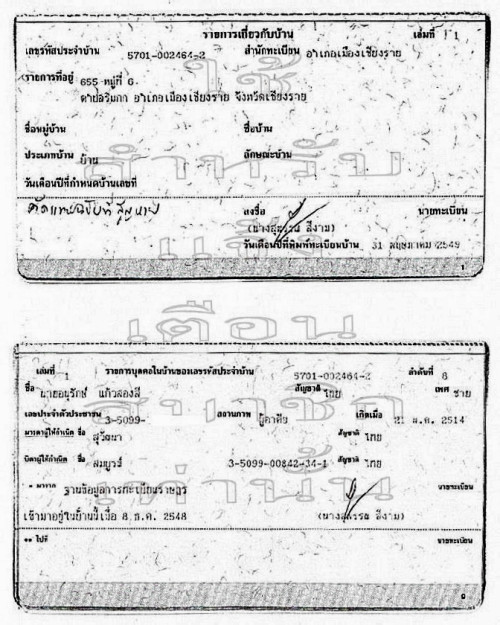 รายการเกี่ยวกับบ้าน เล่มที่ 1
เลขรหัสประจำบ้าน 5701-002464-2 สำนักทะเบียน อำเภอเมืองเชียงราย
รายการที่อยู่ 655 หมู่ที่ 6
ตำบลริมกก อำเภอเมืองเชียงราย จังหวัดเชียงราย
ชื่อหมู่บ้าน ชื่อบ้าน
ประเภทบ้าน บ้าน ลักษณะบ้าน
วันเดือนปีที่กำหนดบ้านเลขที่
ลงชื่อ นายทะเบียน
สีงาม)
วันเดือนปีที่พิมพ์ทะเบียนบ้าน 31 พฤษภาคม 2549
1
ใช้
สำหรับ
แจ้ง
เตือน
สมาชิก
เท่านั้น
เล่มที่ 1 รายการบุคคลในบ้านของเลขรหัสประจำบ้าน 5701-002464-2 ลำดับที่ 8
ชื่อ นายอนุรักษ์ แก้วสองสี สัญชาติ ไทย เพศ ชาย
เลขประจำตัวประชาชน 3-5099- สถานภาพ ผู้อาศัย เกิดเมื่อ 21 2514
มารดาผู้ให้กำเนิด ชื่อ สัญชาติ ไทย
บิดาผู้ให้กำเนิด ชื่อ สมบูรณ์ 3-5099-00842-34-1 สัญชาติ ไทย
* มาจาก ฐานข้อมูลการทะเบียนราษฎร นายทะเบียน
เข้ามาอยู่ในบ้านนี้เมื่อ 8 ธ.ค. 2548 สีงาม)
** ไปที่ นายทะเบียน